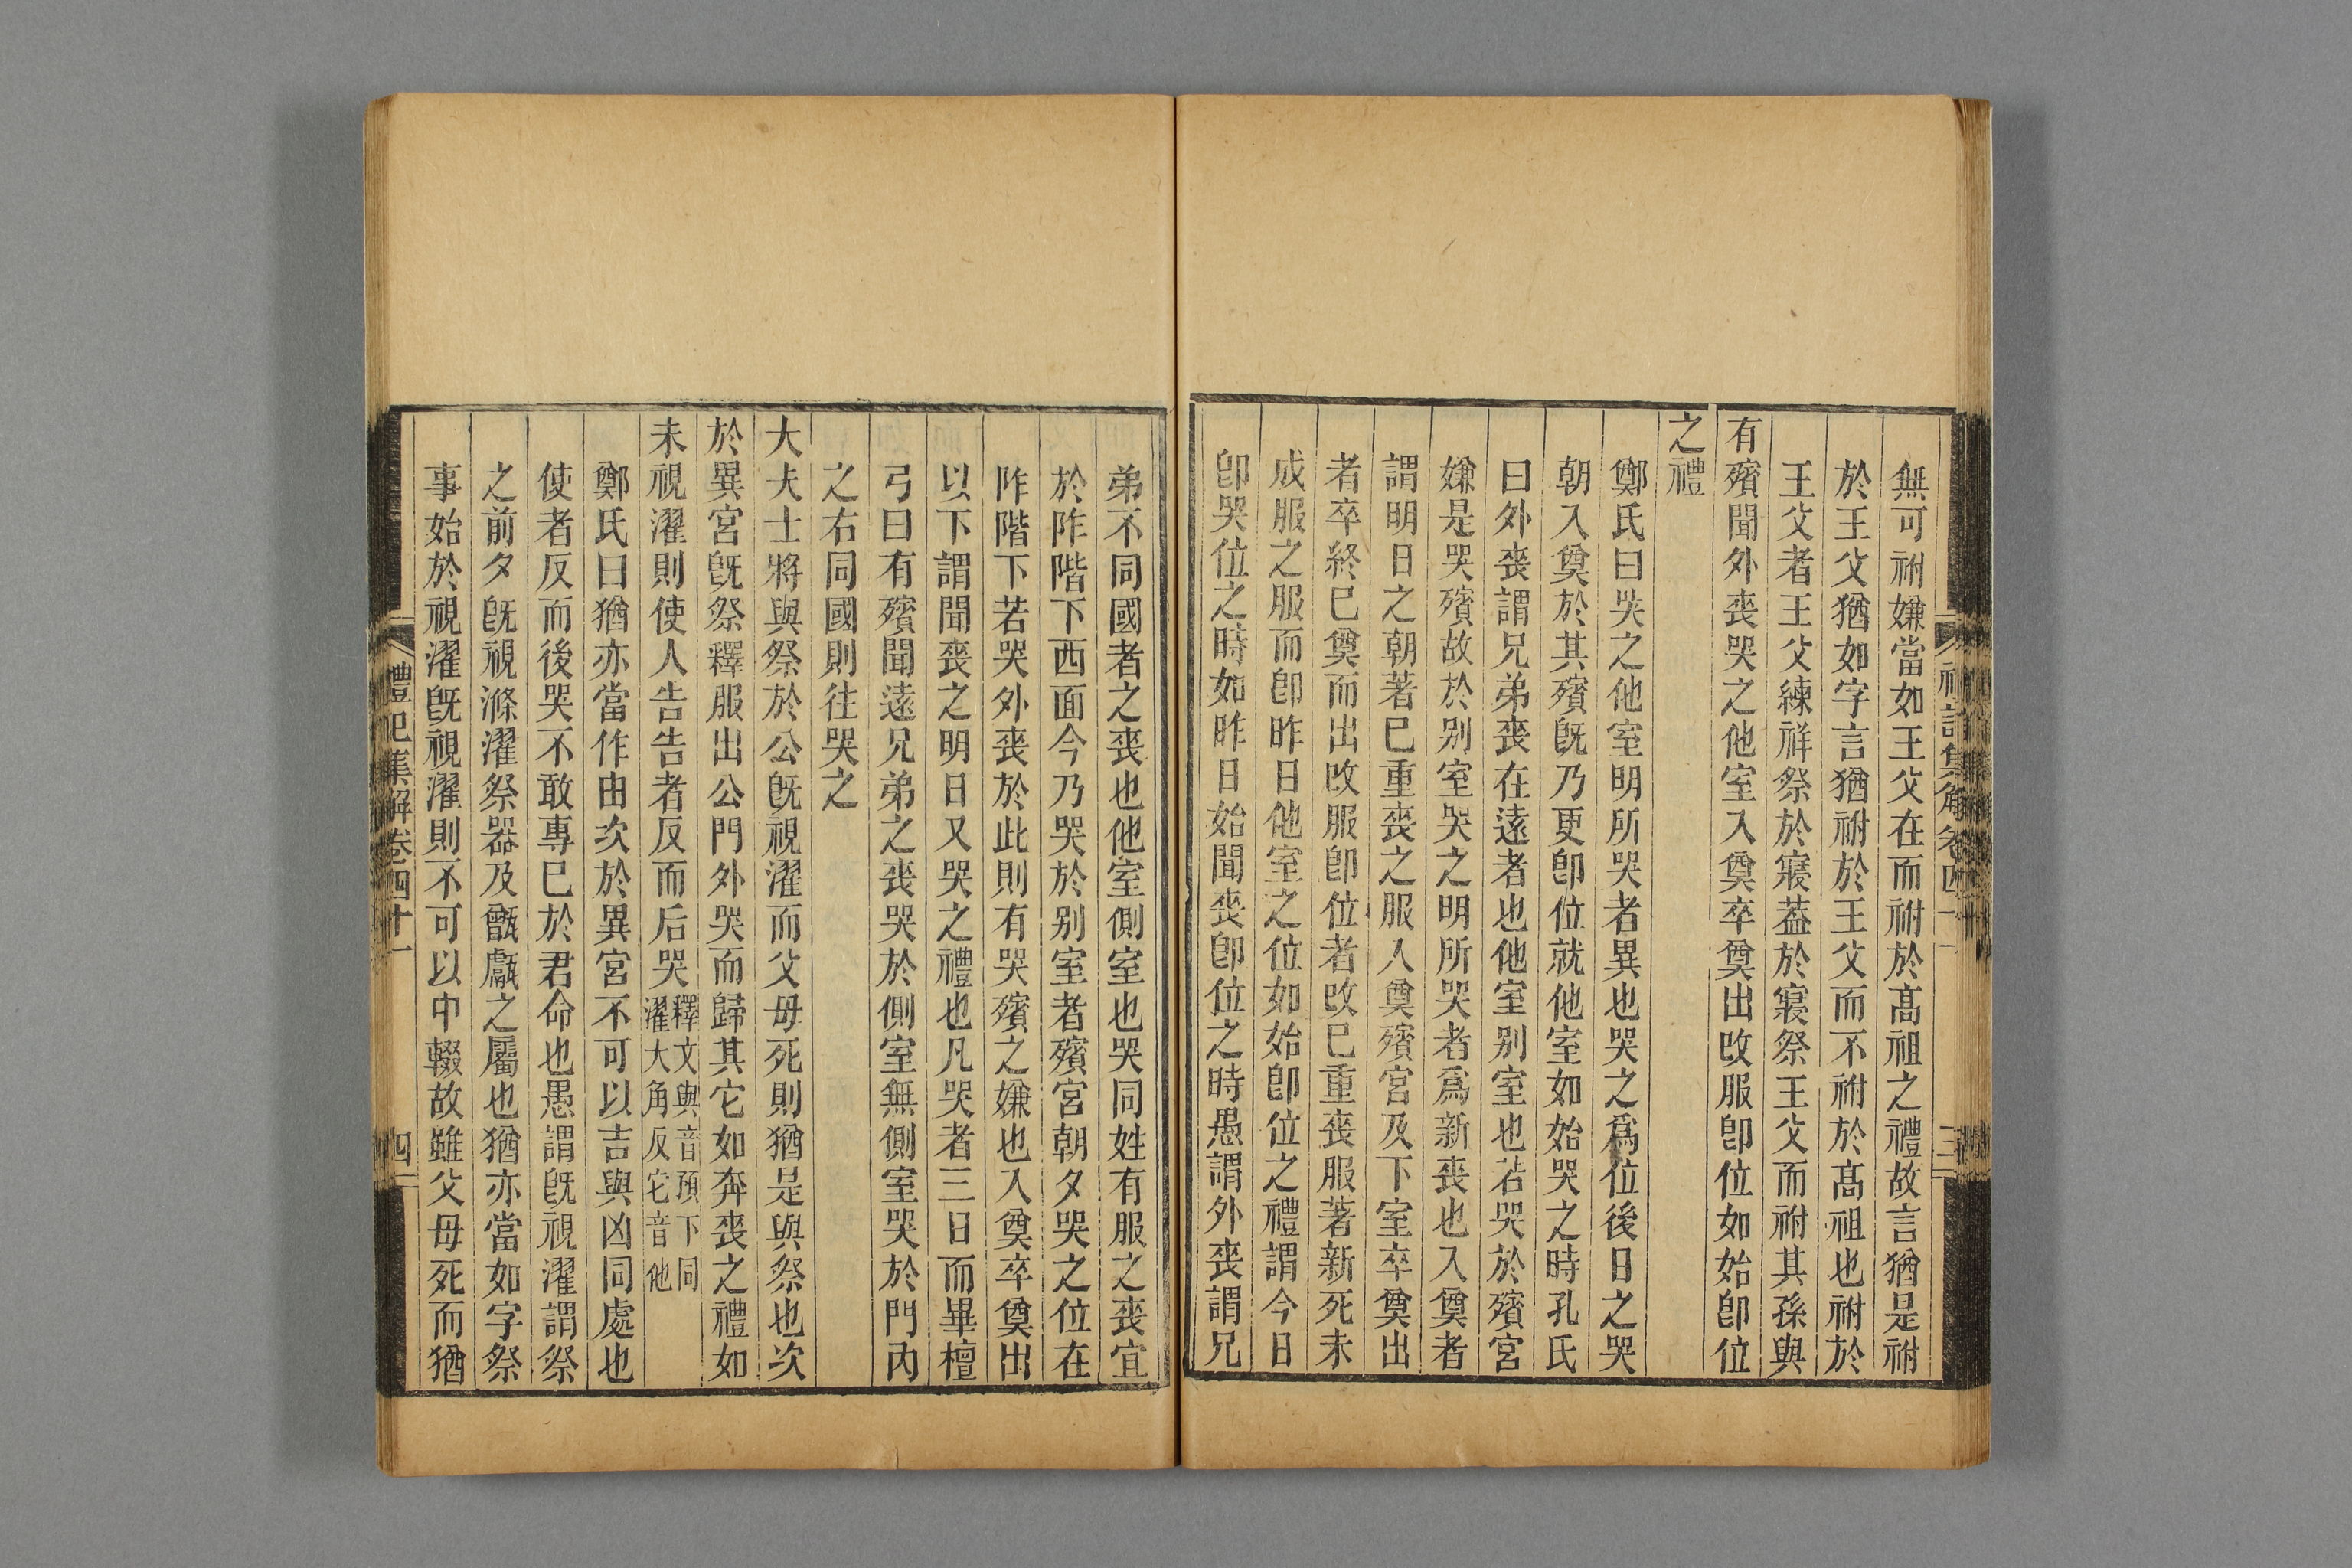 無可祔嫌當如王父在而祔於髙祖之禮故言猶是祔
於王父猶如字言猶祔於王父而不祔於髙祖也祔於
王父者王父練祥祭於寢葢於寢祭王父而祔其孫與
有殯聞外喪哭之他室入奠卒奠出改服卽位如始卽位
之禮
鄭氏曰哭之他室明所哭者異也哭之爲位後日之哭
朝入奠於其殯旣乃更卽位就他室如始哭之時孔氏
曰外喪謂兄弟喪在遠者也他室别室也若哭於殯宮
嫌是哭殯故於别室哭之明所哭者爲新喪也入奠者
謂明日之朝著已重喪之服入奠殯宮及下室卒奠出
者卒終已奠而出改服卽位者改已重喪服著新死未
成服之服而卽昨日他室之位如始卽位之禮謂今日
卽哭位之時如昨日始聞喪卽位之時愚謂外喪謂兄
弟不同國者之喪也他室側室也哭同姓有服之喪宜
於阼階下西面今乃哭於别室者殯宮朝夕哭之位在
阼階下若哭外喪於此則有哭殯之嫌也入奠卒奠出
以下謂聞喪之明日又哭之禮也凡哭者三日而畢檀
弓曰有殯聞遠兄弟之喪哭於側室無側室哭於門內
之右同國則往哭之
大夫士將與祭於公旣視濯而父母死則猶是與祭也次
於異宮旣祭釋服出公門外哭而歸其它如奔喪之禮如
未視濯則使人告告者反而后哭釋文與音預下同濯大角反它音他
鄭氏曰猶亦當作由次於異宮不可以吉與凶同處也
使者反而後哭不敢專已於君命也愚謂旣視濯謂祭
之前夕旣視滌濯祭器及甑甗之屬也猶亦當如字祭
事始於視濯旣視濯則不可以中輟故雖父母死而猶
禮記集解卷四十一
四